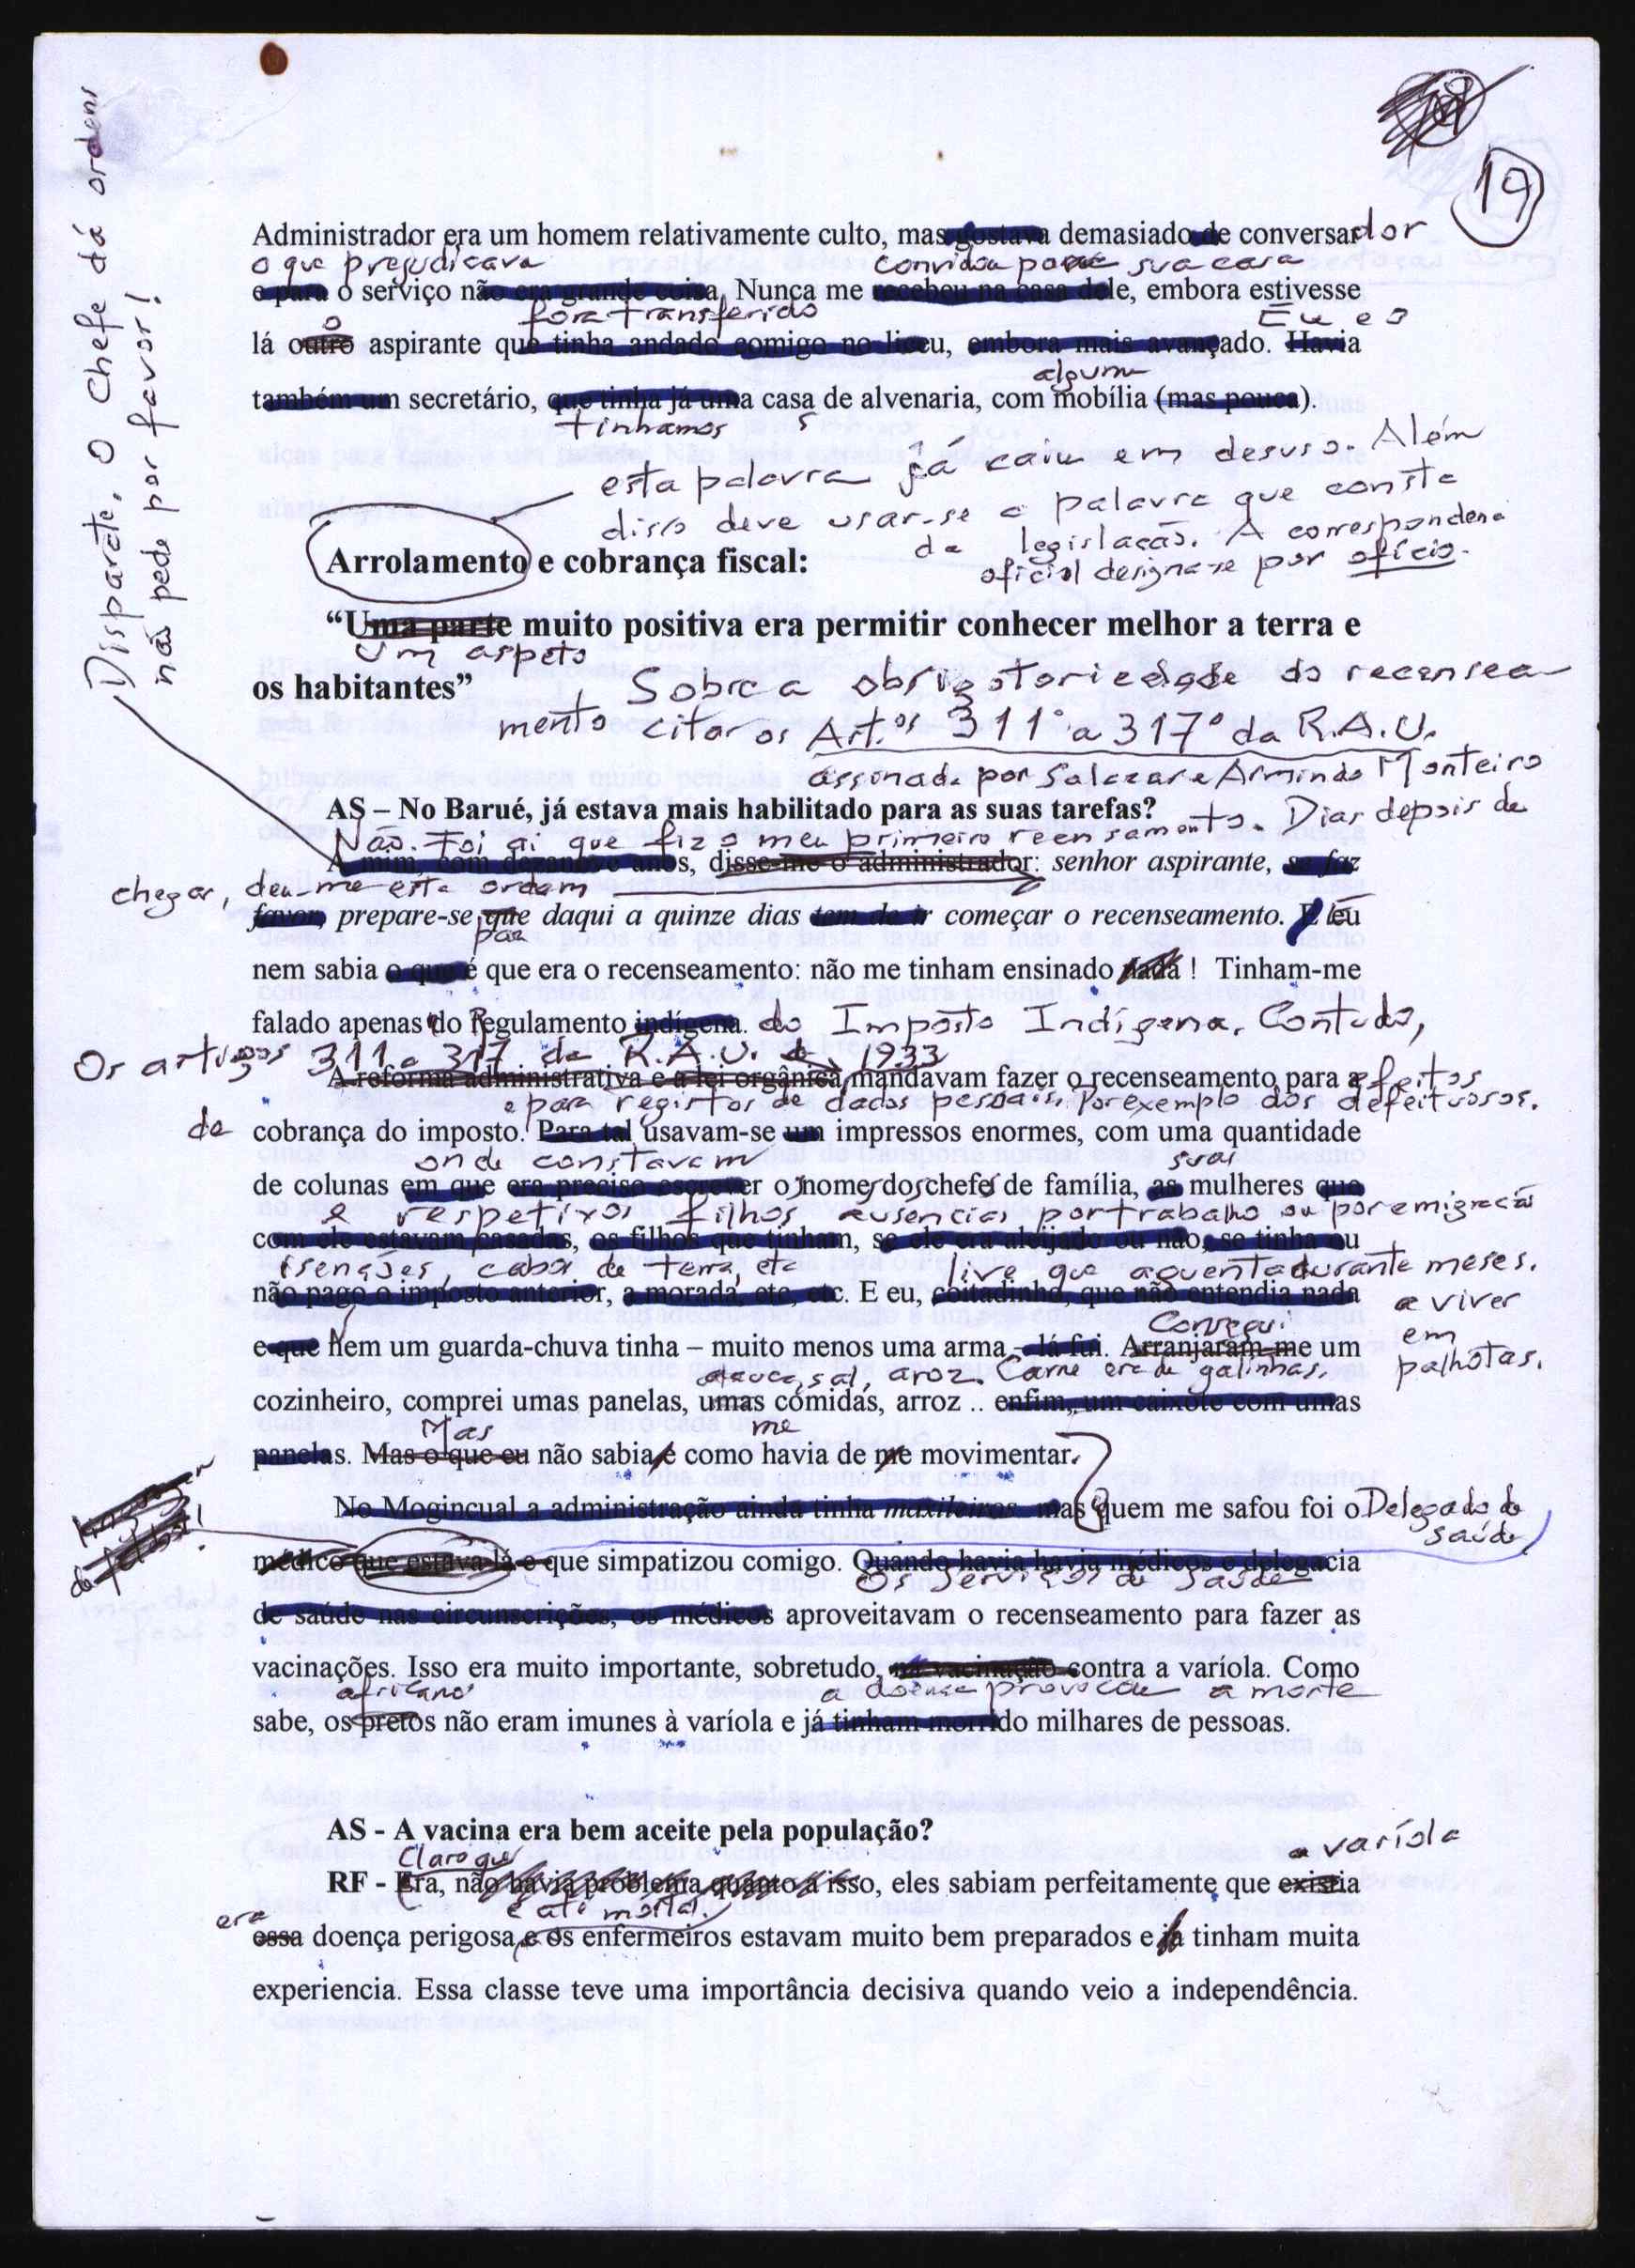 19
Disparate. O Chefe dá ordens
não pede por favor!
Administrador era um homem relativamente culto, mas gostava demasiado de conversar dor
o que prejudicava convidou para sua casa
e para o serviço não era grande coisa, Nunca me recebeu na casa dele, embora estivesse
o fora transferido Eu e o
lá outro aspirante que tinha andado comigo no liceu, embora mais avançado. Havia
alguma
também um secretário, que tinha já uma casa de alvenaria, com mobília (mas pouca).
tinhamos s
esta palavra já caiu em desuso. Além
disso deve usar-se a palavra que consta
da legislação. A correspondena
oficial designa-se por ofício.
Arrolamento e cobrança fiscal:
“Uma parte muito positiva era permitir conhecer melhor a terra e
Um aspeto
os habitantes”
Sobre a obrigatoriedade do recensea
mento citar os Art. os 311º a 317º da R.A.U.
assinada por Salazar e Armindo Monteiro
AS – No Barué, já estava mais habilitado para as suas tarefas?
Não. Foi aí que fiz o meu primeiro recensamento. Dias depois de
A mim, com dezanove anos, disse-me o administrador: senhor aspirante, se faz
chegar, deu-me esta ordem
favor, prepare-se que daqui a quinze dias tem de ir começar o recenseamento. E eu
para
nem sabia o que é que era o recenseamento: não me tinham ensinado nada ! Tinham-me
falado apenas do Regulamento indígena. do Imposto Indígena. Contudo,
Os artigos 311 a 317 da R.A.U. de 1933
A reforma administrativa e a lei orgânica mandavam fazer o recenseamento para a efeitos
e para registos de dados pessoais. Por exemplo dos defeituosos.
de cobrança do imposto. Para tal usavam-se um impressos enormes, com uma quantidade
onde constavam suas
de colunas em que era preciso escrever o nome do chefe de família, as mulheres que
s s s
e respetivos filhos ausencias por trabalho ou por emigração
com ele estavam casadas, os filhos que tinham, se ele era aleijado ou não, se tinha ou
isenções, cabos de terra, etc tive que aguentar durante meses.
não pago o imposto anterior, a morada, etc, etc. E eu, coitadinho, que não entendia nada
a viver
em
palhotas.
Consegui
e que nem um guarda-chuva tinha – muito menos uma arma – lá fui. Arranjaram-me um
sal, aroz. Carne era de galinhas.
cozinheiro, comprei umas panelas, umas comidas, arroz .. enfim, um caixote com umas
Mas me
panelas. Mas o que eu não sabia é como havia de me movimentar.
No Mogincual a administração ainda tinha maxileiros mas quem me safou foi o Delegado de
saúde
médico que estava lá e que simpatizou comigo. Quando havia havia médicos e delegacia
Os Serviços de Saúde
de saúde nas circunscrições, os médicos aproveitavam o recenseamento para fazer as
vacinações. Isso era muito importante, sobretudo, na vacinação contra a varíola. Como
africanos a doença provocou a morte
sabe, os pretos não eram imunes à varíola e já tinham morrido milhares de pessoas.
AS - A vacina era bem aceite pela população?
Claro que a varíola
RF - Era, não havia problema quanto a isso, eles sabiam perfeitamente que existia
era e até mortal
essa doença perigosa e os enfermeiros estavam muito bem preparados e já tinham muita
experiencia. Essa classe teve uma importância decisiva quando veio a independência.